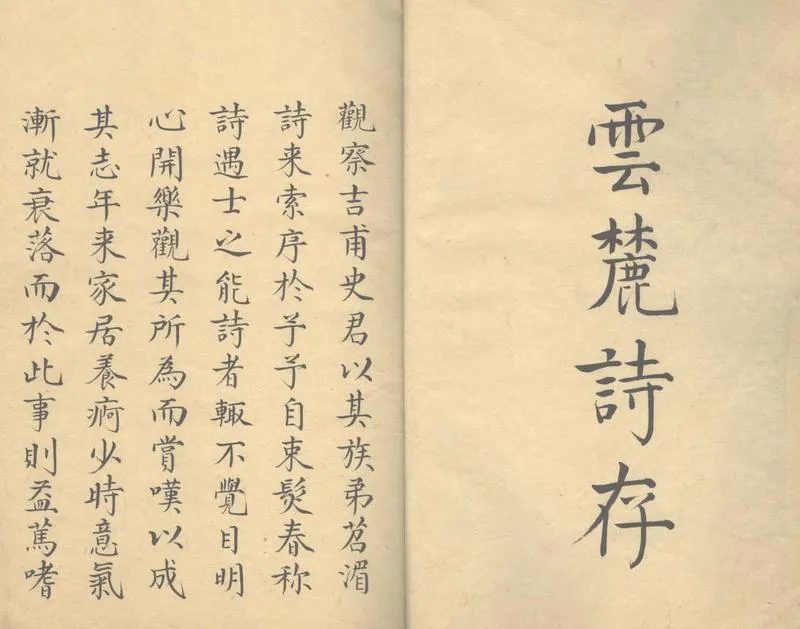 雲麓詩存
觀察吉甫史君以其族弟茗湄
詩来索序於予予自束髮春称
詩遇士之能詩者輙不覺目明
心開樂觀其所為而嘗嘆以成
其志年来家居養痾少時意氣
漸就衰落而於此事則益篤嗜